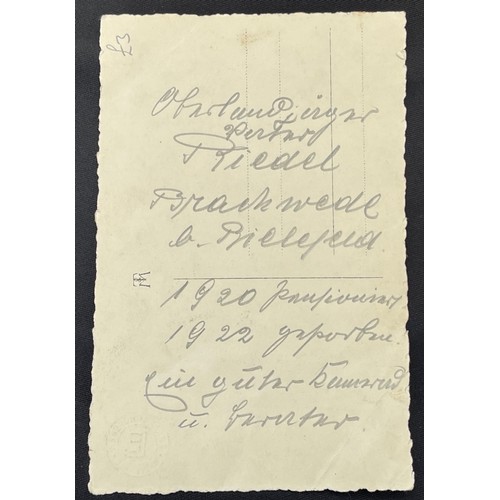 £3
Oberlandjäger
Peter
Riedel
Brackwede
b. Bielefeld.
1920 pensioniert
1922 gestorben.
Ein guter Kamerad
u. Berater.